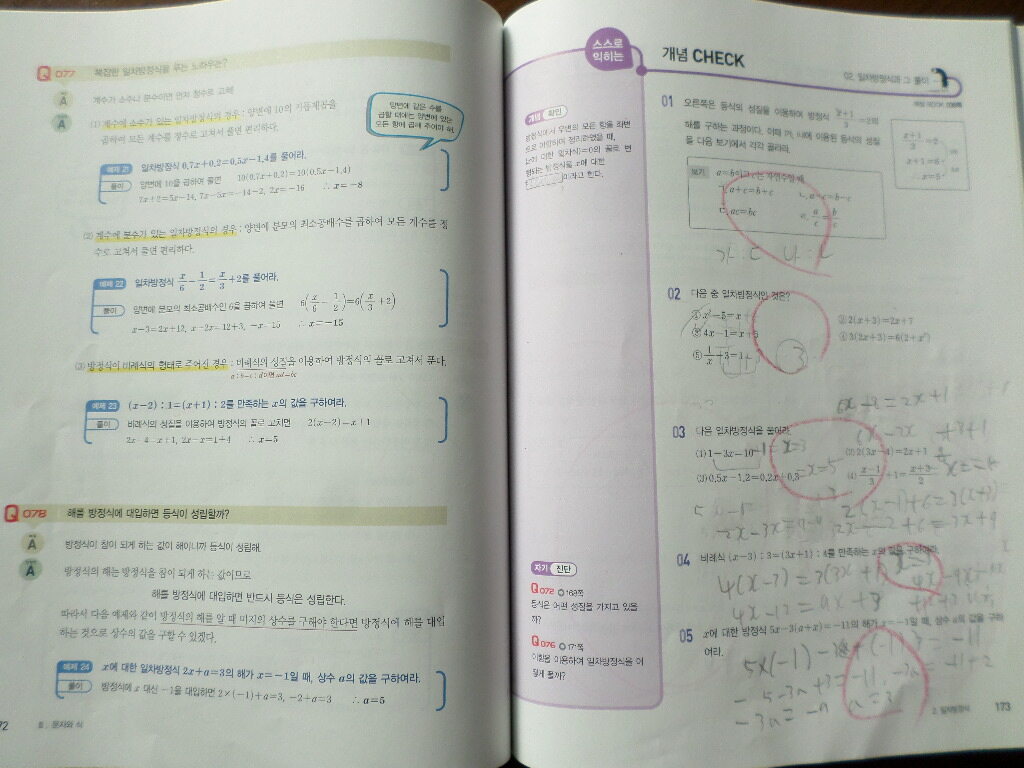 Q 077 복잡한 일차방정식을 푸는 노하우는?
A 계수가 소수나 분수이면 먼저 정수로 고쳐!
A (1) 계수에 소수가 있는 일차방정식의 경우 : 양변에 10의 거듭제곱을
곱하여 모든 계수를 정수로 고쳐서 풀면 편리하다.
양변에 같은 수를
곱할 때에는 양변에 있는
모든 항에 곱해 주어야 해.
예제 21 일차방정식 0.7x+0.2=0.5x-1.4를 풀어라.
풀이 양변에 10을 곱하여 풀면 10(0.7x+0.2)=10(0.5x-1.4)
7x+2=5x-14, 7x-5x=-14-2, 2x=-16 ∴ x=-8
(2) 계수에 분수가 있는 일차방정식의 경우 : 양변에 분모의 최소공배수를 곱하여 모든 계수를 정
수로 고쳐서 풀면 편리하다.
예제 22 일차방정식 x/6-1/2=x/3+2를 풀어라.
풀이 양변에 분모의 최소공배수인 6을 곱하여 풀면 6(x/6-1/2)=6(x/3+2)
x-3=2x+12, x-2x=12+3, -x=15 ∴ x=-15
(3) 방정식이 비례식의 형태로 주어진 경우 : 비례식의 성질을 이용하여 방정식의 꼴로 고쳐서 푼다.
a:b=c:d이면 ad=bc
예제 23 (x-2) : 1=(x+1) : 2를 만족하는 x의 값을 구하여라.
풀이 비례식의 성질을 이용하여 방정식의 꼴로 고치면 2(x-2)=x+1
2x-4=x+1, 2x-x=1+4 ∴ x=5
Q 078 해를 방정식에 대입하면 등식이 성립할까?
A 방정식이 참이 되게 하는 값이 해이니까 등식이 성립해.
A 방정식의 해는 방정식을 참이 되게 하는 값이므로
해를 방정식에 대입하면 반드시 등식은 성립한다.
따라서 다음 예제와 같이 방정식의 해를 알 때 미지의 상수를 구해야 한다면 방정식에 해를 대입
하는 것으로 상수의 값을 구할 수 있겠다.
예제 24 x에 대한 일차방정식 2x+a=3의 해가 x=-1일 때, 상수 a의 값을 구하여라.
풀이 방정식에 x 대신 -1을 대입하면 2×(-1)+a=3, -2+a=3 ∴ a=5
72 Ⅲ. 문자와 식
스스로
익히는
개념 CHECK
02. 일차방정식과 그 풀이
개념 확인
방정식에서 우변의 모든 항을 좌변
으로 이항하여 정리하였을 때,
(x에 대한 일차식)=0의 꼴로 변
형되는 방정식을 x에 대한
이라고 한다.
자기 진단
Q 072 168쪽
등식은 어떤 성질을 가지고 있을
까?
Q 076 171쪽
이항을 이용하여 일차방정식을 어
떻게 풀까?
01 오른쪽은 등식의 성질을 이용하여 방정식 x+1/2=2의
해를 구하는 과정이다. 이때 ㈎, ㈏에 이용된 등식의 성질
을 다음 보기에서 각각 골라라.
x+1/2=2
x+1=4
∴ x=3
보기
a+c=b+c
a-c=b-c
ㄷ. ac=bc
ㄹ. a/c=b/c
가 : ㄷ 나 : ㄴ
02 다음 중 일차방정식인 것은?
② 2(x+3)=2x+7
③ 4x-1=x+5
3
03 다음 일차방정식을 풀어라.
(2) 2(3x-4)=2x+1
(3) 0.5x-1.2=0.2x+0.3
x=5
(4) x-1/3+1=x+3/2
04 비례식 (x-3) : 3=(3x+1) : 4를 만족하는 x의 값을 구하여라.
4(x-3)=3(3x+1)
4x-12=9x+3
05 x에 대한 방정식 5x-3(a+x)=-11의 해가 x=-1일 때, 상수 a의 값을 구하
여라.
-5-3a+3=-11
-3a=-9 a=3
2. 일차방정식 173